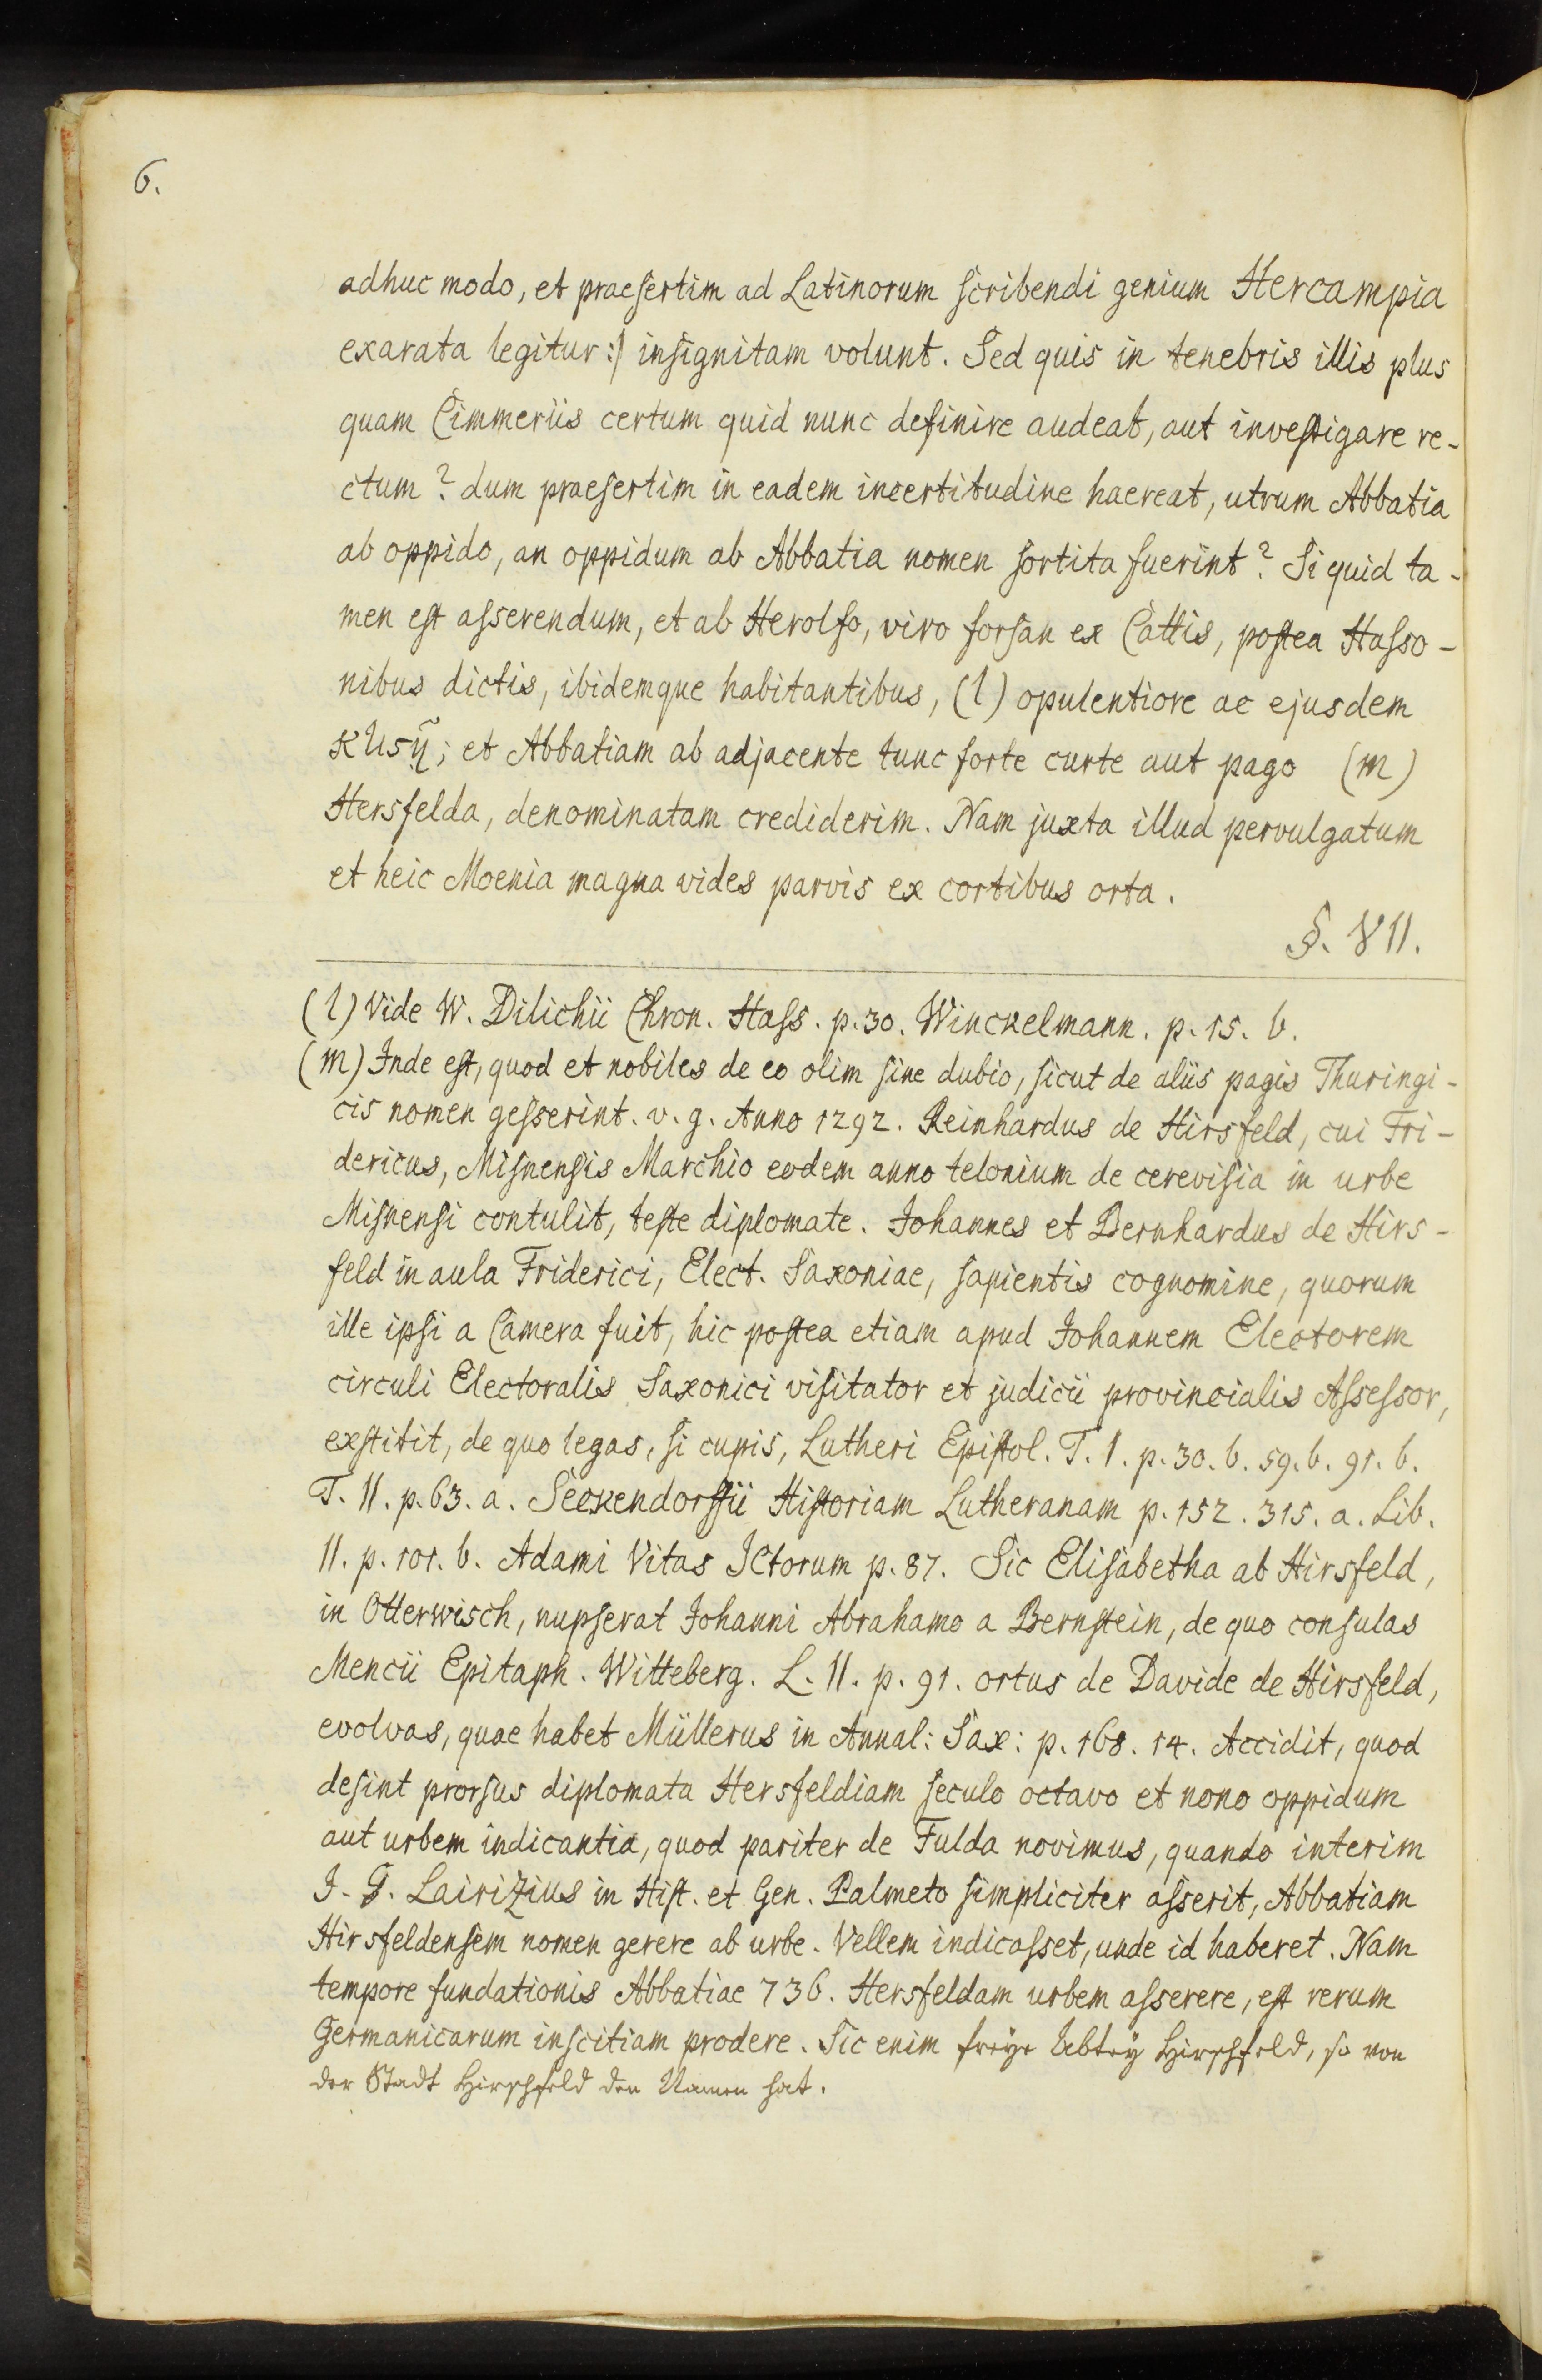 6.
adhuc modo, et praesertim ad Latinorum scribendi genium Hercampia
exarata legitur :/ insignitam volunt. Sed quis in tenebris illis plus
quam Cimmeriis certum quid nunc definire audeat, aut investigare re-
ctum? dum praesertim in eadem incertitudine haereat, utrum Abbatia
ab oppido, an oppidum ab Abbatia nomen sortita fuerint? Si quid ta-
men est asserendum, et ab Herolfo, viro forsan ex Cattis, postea Hasso-
nibus dictis, ibidemque habitantibus, (l) opulentiore ac ejusdem
; et Abbatiam ab adjacente tunc forte curte aut pago (m)
Hersfelda, denominatam crediderim. Nam juxta illud pervulgatum
et heic Moenia magna vides parvis ex cortibus orta.
§. VII.
(l) Vide W. Dilichii Chron. Hass. p. 30. Winckelmann. p. 15. b.
(m) Inde est, quod et nobiles de eo olim sine dubio, sicut de aliis pagis Thuringi-
cis nomen gesserint. v. g. Anno 1292. Reinhardus de Hirsfeld, cui Fri-
dericus, Misnensis Marchio eodem anno telonium de cerevisia in urbe
Misnensi contulit, teste diplomate. Johannes et Bernhardus de Hirs-
feld in aula Friderici, Elect. Saxoniae, sapientis cognomine, quorum
ille ipsi a Camera fuit, hic postea etiam apud Johannem Electorem
circuli Electoralis Saxonici visitator et judicii provincialis Assessor,
exstitit, de quo legas, si cupis, Lutheri Epistol. T. I. p. 30. b. 59. b. 91. b.
T. II. p. 63. a. Seckendorffii Historiam Lutheranam p. 152. 315. a. Lib.
II. p. 101. b. Adami Vitas ICtorum p. 87. Sic Elisabetha ab Hirsfeld,
in Otterwisch, nupserat Johanni Abrahamo a Bernstein, de quo consulas
Mencii Epitaph. Witteberg. L. II. p. 91. ortus de Davide de Hirsfeld,
evolvas, quae habet Müllerus in Annal: Sax: p. 168. 14. Accidit, quod
desint prorsus diplomata Hersfeldiam seculo octavo et nono oppidum
aut urbem indicantia, quod pariter de Fulda novimus, quando interim
J. G. Lairizius in Hist. et Gen. Palmeto simpliciter asserit, Abbatiam
Hirsfeldensem nomen gerere ab urbe. Vellem indicasset, unde id haberet. Nam
tempore fundationis Abbatiae 736. Hersfeldam urbem asserere, est rerum
Germanicarum inscitiam prodere. Sic enim freye Abtey Hirschfeld, so von
der Stadt Hirschfeld den Namen hat.